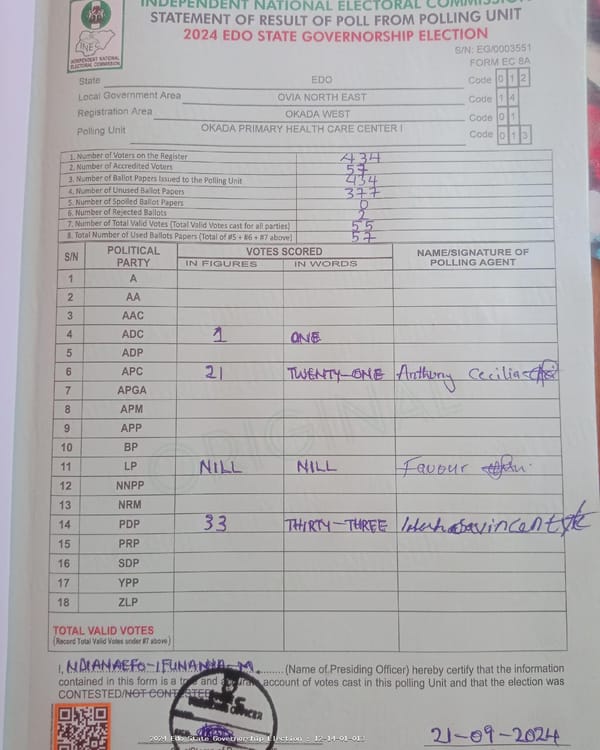 INDEPENDENT NATIONAL ELECTORAL COMMISSION
STATEMENT OF RESULT OF POLL FROM POLLING UNIT
2024 EDO STATE GOVERNORSHIP ELECTION
INEC
INDEPENDENT NATIONAL
ELECTORAL COMMISSION
S/N: EG/0003551
FORM EC 8A
State EDO Code 0 1 2
Local Government Area OVIA NORTH EAST Code 1 4
Registration Area OKADA WEST Code 0 1
Polling Unit OKADA PRIMARY HEALTH CARE CENTER I Code 0 1 3
1. Number of Voters on the Register 434
2. Number of Accredited Voters 57
3. Number of Ballot Papers Issued to the Polling Unit 434
4. Number of Unused Ballot Papers 377
5. Number of Spoiled Ballot Papers 0
6. Number of Rejected Ballots 2
7. Number of Total Valid Votes (Total Valid Votes cast for all parties) 55
8. Total Number of Used Ballots Papers (Total of #5 + #6 + #7 above) 57
S/N POLITICAL PARTY VOTES SCORED NAME/SIGNATURE OF POLLING AGENT
IN FIGURES IN WORDS
1 A
2 AA
3 AAC
4 ADC 1 ONE
5 ADP
6 APC 21 TWENTY-ONE Anthony Cecilia
7 APGA
8 APM
9 APP
10 BP
11 LP NILL NILL Favour
12 NNPP
13 NRM
14 PDP 33 THIRTY-THREE
15 PRP
16 SDP
17 YPP
18 ZLP
ORIGINAL
TOTAL VALID VOTES
(Record Total Valid Votes under #7 above)
I, NDIANAEFO-IFUNANYA-M. (Name of Presiding Officer) hereby certify that the information
contained in this form is a true and accurate account of votes cast in this polling Unit and that the election was
CONTESTED/NOT CONTESTED
2024 Edo State Governorship Election : 12-14-01-013
21-09-2024